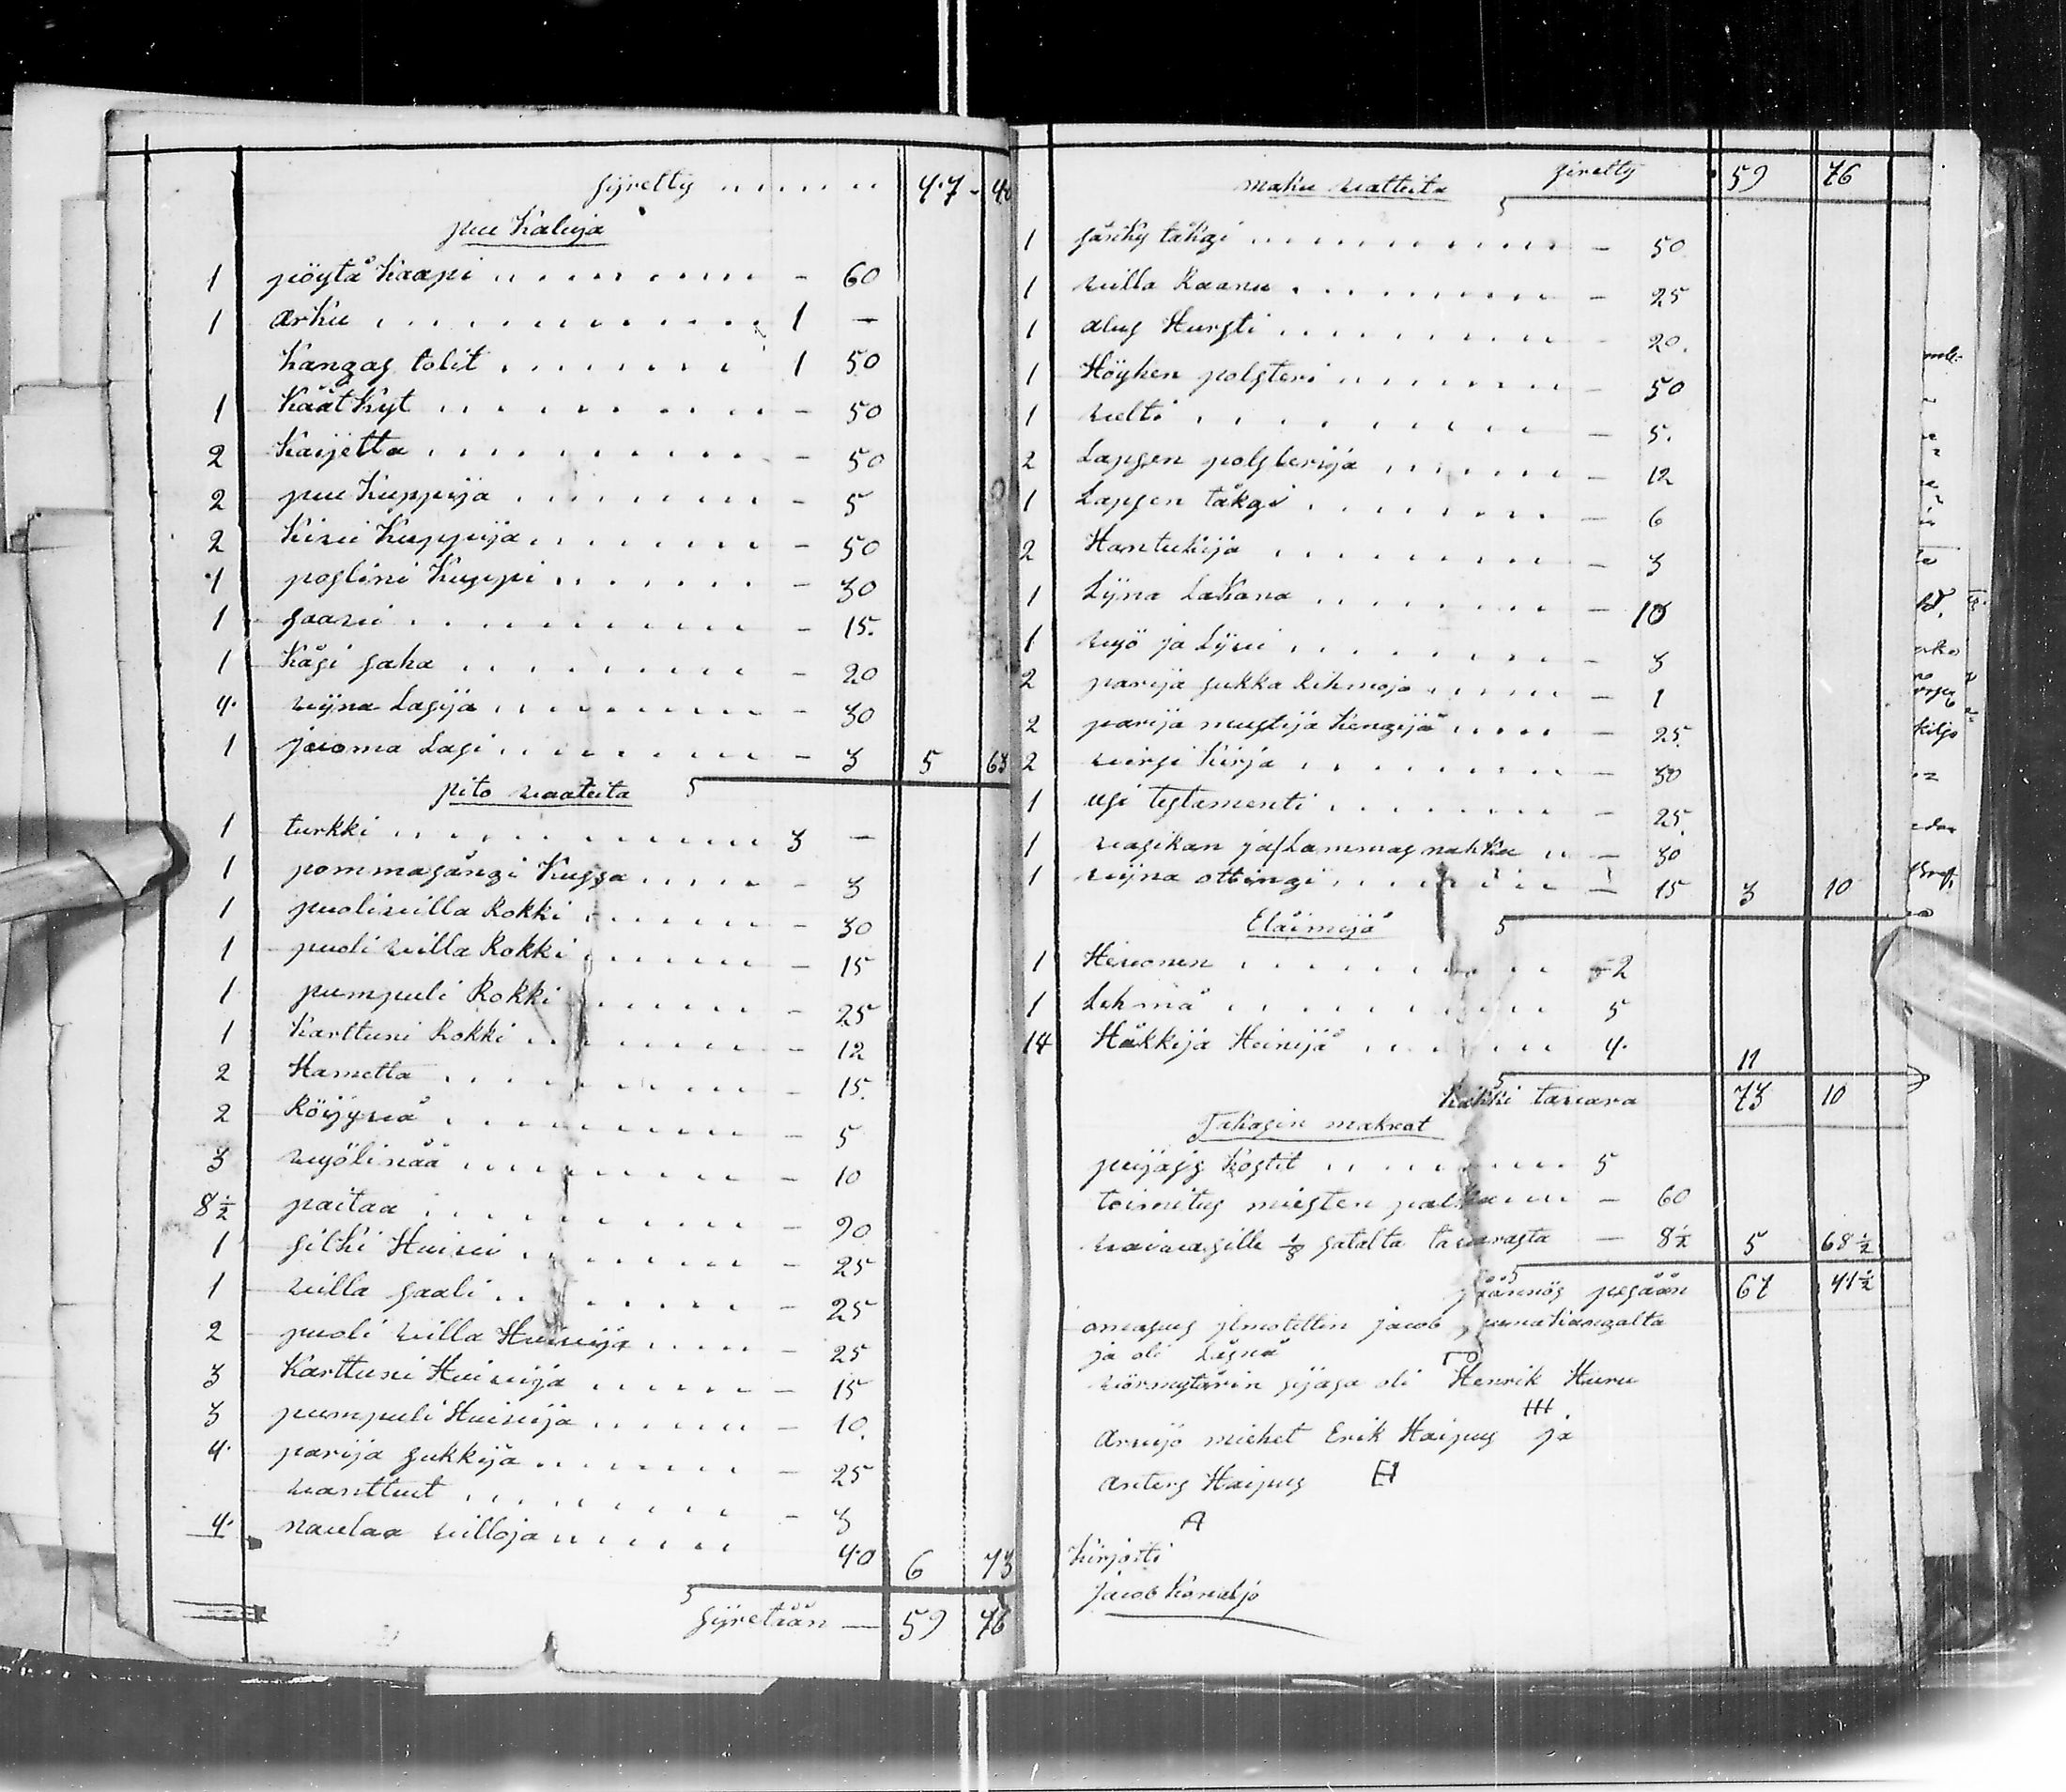 syretty 47 - 40
puu Kaluja
1 pöytä Kaapi - 60
1 arku 1 -
Kangas tolit 1 50
1 Käät Kyt - 50
2 Kaijetta - 50
2 puu Kuppija - 5
2 Kivi Kuppija - 50
1 poslini Kuppi - 30
1 saavi - 15.
1 Käsi saha - 20
4. viina Lasija - 30
1 juoma Lasi - 3 5 63
pito vaateita
1 turkki 3 -
1 pommasängi Kussa - 3
1 puolivilla Rokki - 30
1 puoli villa Rokki - 15
1 pumpuli Rokki - 25
1 Karttuni Rokki - 12
2 Hametta - 15.
2 Röijyvä - 5
3 vyölinää - 10
8½ paitaa - 90
1 silki Huivi - 25
1 villa saali - 25
2 puoli villa Huivija - 25
3 Karttuni Huivija - 15
3 pumpuli Huivija - 10.
4. parija sukkija - 25
vanttut - 3
4. naulaa villoja 40 6 73
syretään — 59 76
maku vatteita siretty 59 76
1 särky täkgi - 50
1 villa Raanu - 25
1 alus Hursti - 20.
1 Höyhen polsteri - 50
1 velti - 5.
2 Lapsen polsterija - 12
1 Lapsen täkgi - 6
2 Hantukija - 3
1 Lijna Lakana - 10
1 vyö ja Lijvi - 3
2 parija sukka Rihmoja - 1
2 parija mustija Kengijä - 25.
2 virsi Kirja - 30
1 usi testamenti - 25.
1 vasikan ja Lammas nahka - 30
1 viina ottingi - 15 3 10
Eläimijä
1 Hevonen 2
1 Lehmä 5
14 Häkkijä Heinijä 4. 11
Kaikki tavara 73 10
Takasin maksot
puijasis Kostit 5
toimitus miesten palkka - 60
vaivasille ⅛ satalta tavarasta - 8½ 5 68½
jäännös pesään 67 41½
omasus ilmotettin jacob junnakangalta
ja oli Läsnä
vörmytärin sijasa oli Henrik Huru
HH
Arvijo miehet Erik Haipus ja
Anters Haipus H
A
Kirjoiti
Jacob Konaljo